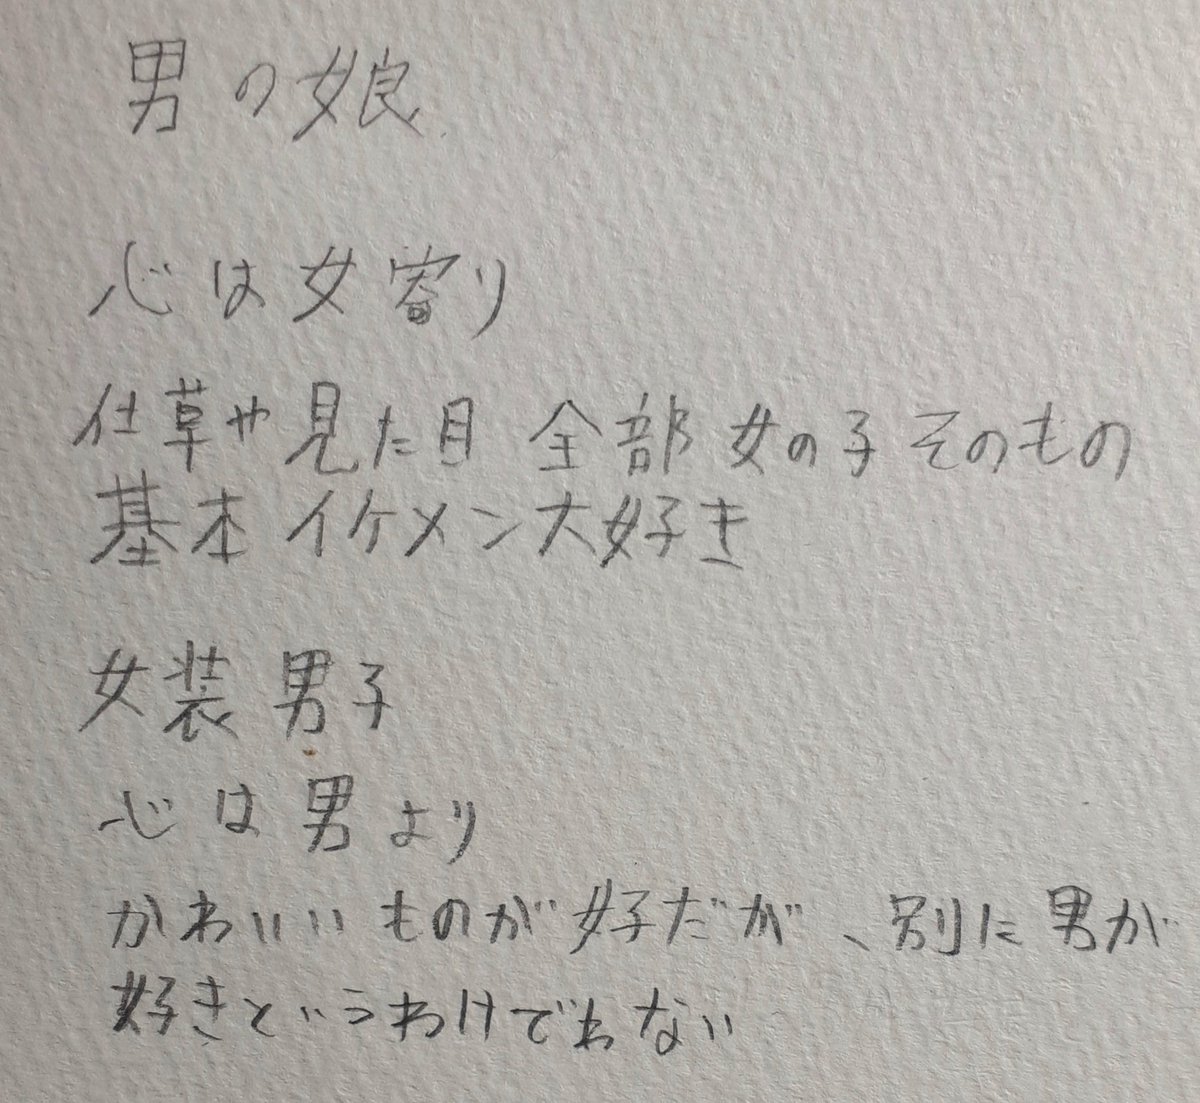 男の娘
心は女寄り
仕草や見た目 全部 女の子そのもの
基本 イケメン大好き
女装 男子
心は男より
かわいいものが好だが、別に男が
好きというわけでわない